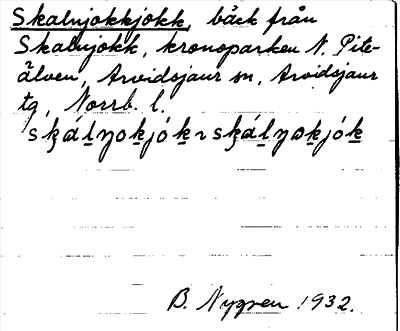 Skalnjokkjokk, bäck från
Skalnjokk, kronoparken N. Pite-
älven, Arvidsjaur sn, Arvidsjaur
tg, Norrb. l.
B. Nygren 1932.